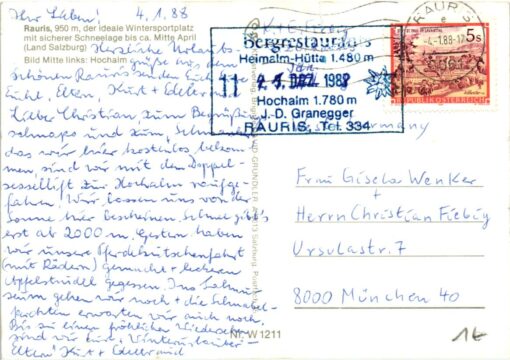 Ihr Lieben! 4.1.88
Rauris, 950 m, der ideale Wintersportplatz
mit sicherer Schneelage bis ca. Mitte April
(Land Salzburg)
Bild Mitte links: Hochalm
Herzliche Urlaubs-
grüße aus dem
schönen Rauris senden Euch
Eltern, Kurt + Edeltraud
Lieber Christian, zum Begrüßungs-
schnaps und zum
das wir hier kostenlos bekom-
men, sind wir mit dem Doppel-
sessellift zur Hochalm raufge-
fahren. Wir lassen uns von der
Sonne hier bescheinen. Schnee gibt's
erst ab 2000 m. Gestern haben
wir unsere Pferdekutschenfahrt
(mit Rädern) gemacht + leckeren
Apfelstrudel gegessen. Ins
gehen wir noch + die Schnabel-
perchten erwarten wir auch noch.
Bis zu einem fröhlichen Wiedersehen
sind wir Eure
Eltern, Kurt + Edeltraud
Nr. W 1211
RAURIS
-4.-1.88-17
5s
REPUBLIK ÖSTERREICH
Bergrestaurants
Heimalm-Hütte 1.480 m
Hochalm 1.780 m
J.-D. Granegger
RAURIS, Tel. 334
Germany
Frau Gisela Wenker
+
Herrn Christian Fiebig
Ursulastr. 7
8000 München 40
1€